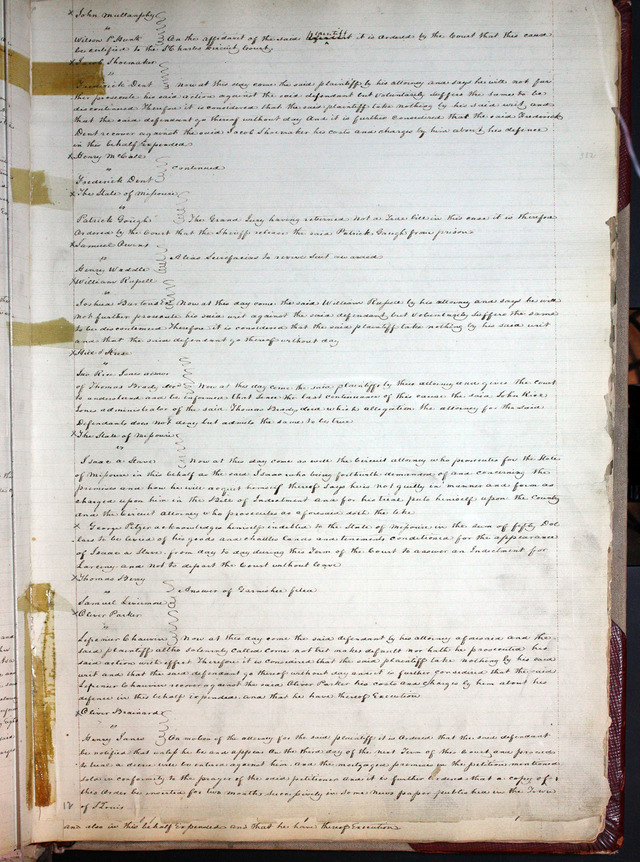 x John Mullanphy
"
Wilson P Hunt On the affidavit of the said plaintiff it is ordered by the Court that this cause
be certified to the St Charles Circuit Court
x Jacob Shoemaker
"
Frederick Dent Now at this day come the said plaintiff by his attorney and says he will not fur
ther prosecute his said action against the said defendant but voluntarily suffers the same to be
discontinued Therefore it is considered that the said plaintiff take nothing by his said writ and
that the said defendant go thereof without day And it is further considered that the said Frederick
Dent recover against the said Jacob Shoemaker his costs and charges by him about his defence
in this behalf Expended
x Henry McCabe
"
continued
Frederick Dent
x The State of Missouri
"
Patrick Gough The Grand Jury having returned Not a True bill in this case it is therefore
Ordered by the Court that the Sheriff release the said Patrick Gough from prison
x Samuel Owens
"
Alias Scirefacias to revive Suit awarded
Henry Waddle
x William Russell
"
Joshua Barton Now at this day come the said William Russell by his attorney and says he will
not further prosecute his said writ against the said defendant, but voluntarily suffers the same
to be discontinued Therefore it is considered that the said plaintiff take nothing by his said writ
and that the said defendant go thereof without day
x Hill &
"
Jno Rice Jones admr
of Thomas Brady decd Now at this day come the said plaintiffs by their attorney and gives the Court
to understand and be informed that since the last continuance of this cause the said John Rice
Jones administrator of the said Thomas Brady decd which allegation the attorney for the said
Defendants does not deny but admits the same to be true
x The State of Missouri
"
Isaac a Slave Now at this day come as well the Circuit attorney who prosecutes for the State
of Missouri in this behalf as the said Isaac who being forthwith demanded of and concerning the
premises and how he will acquit himself thereof says he is not guilty in manner and form as
charged upon him in the Bill of Indictment and for his trial puts himself upon the County
and the Circuit attorney who prosecutes as aforesaid doth the like
x George Pitzer acknowledges himself indebted to the State of Missouri in the sum of fifty Dol
lars to be levied of his goods and chattles Lands and tenements conditioned for the appearance
of Isaac a Slave, from day to day during this Term of the Court to answer an Indictment for
Larceny and not to depart the Court without leave
x Thomas Berry
"
Answer of Garnishee filed
Samuel
x Oliver Parker
"
Lefrenier Chauvin Now at this day come the said defendant by his attorney aforesaid and the
said plaintiff altho Solemnly Called come not but makes default nor hath he prosecuted his
said action with effect Therefore it is considered that the said plaintiff take nothing by his said
writ and that the said defendant go thereof without day and it is further considered that the said
Lefrenier Chauvin recover against the said Oliver Parker his costs and charges by him about his
defence in this behalf Expended and that he have thereof Execution
x Oliver Brainard
"
Henry Janes On motion of the attorney for the said plaintiff it is Ordered that the said defendant
be notified that unless he be and appear On the third day of the next Term of this Court and proceed
to a decree will be entered against him and the mortgaged premises in the petition mentioned
sold in conformity to the prayer of the said petitioner and it is further ordered that a copy of
this order be inserted for two months successively in some News paper published in the Town
of St Louis
and also in this behalf Expended and that he have thereof Execution